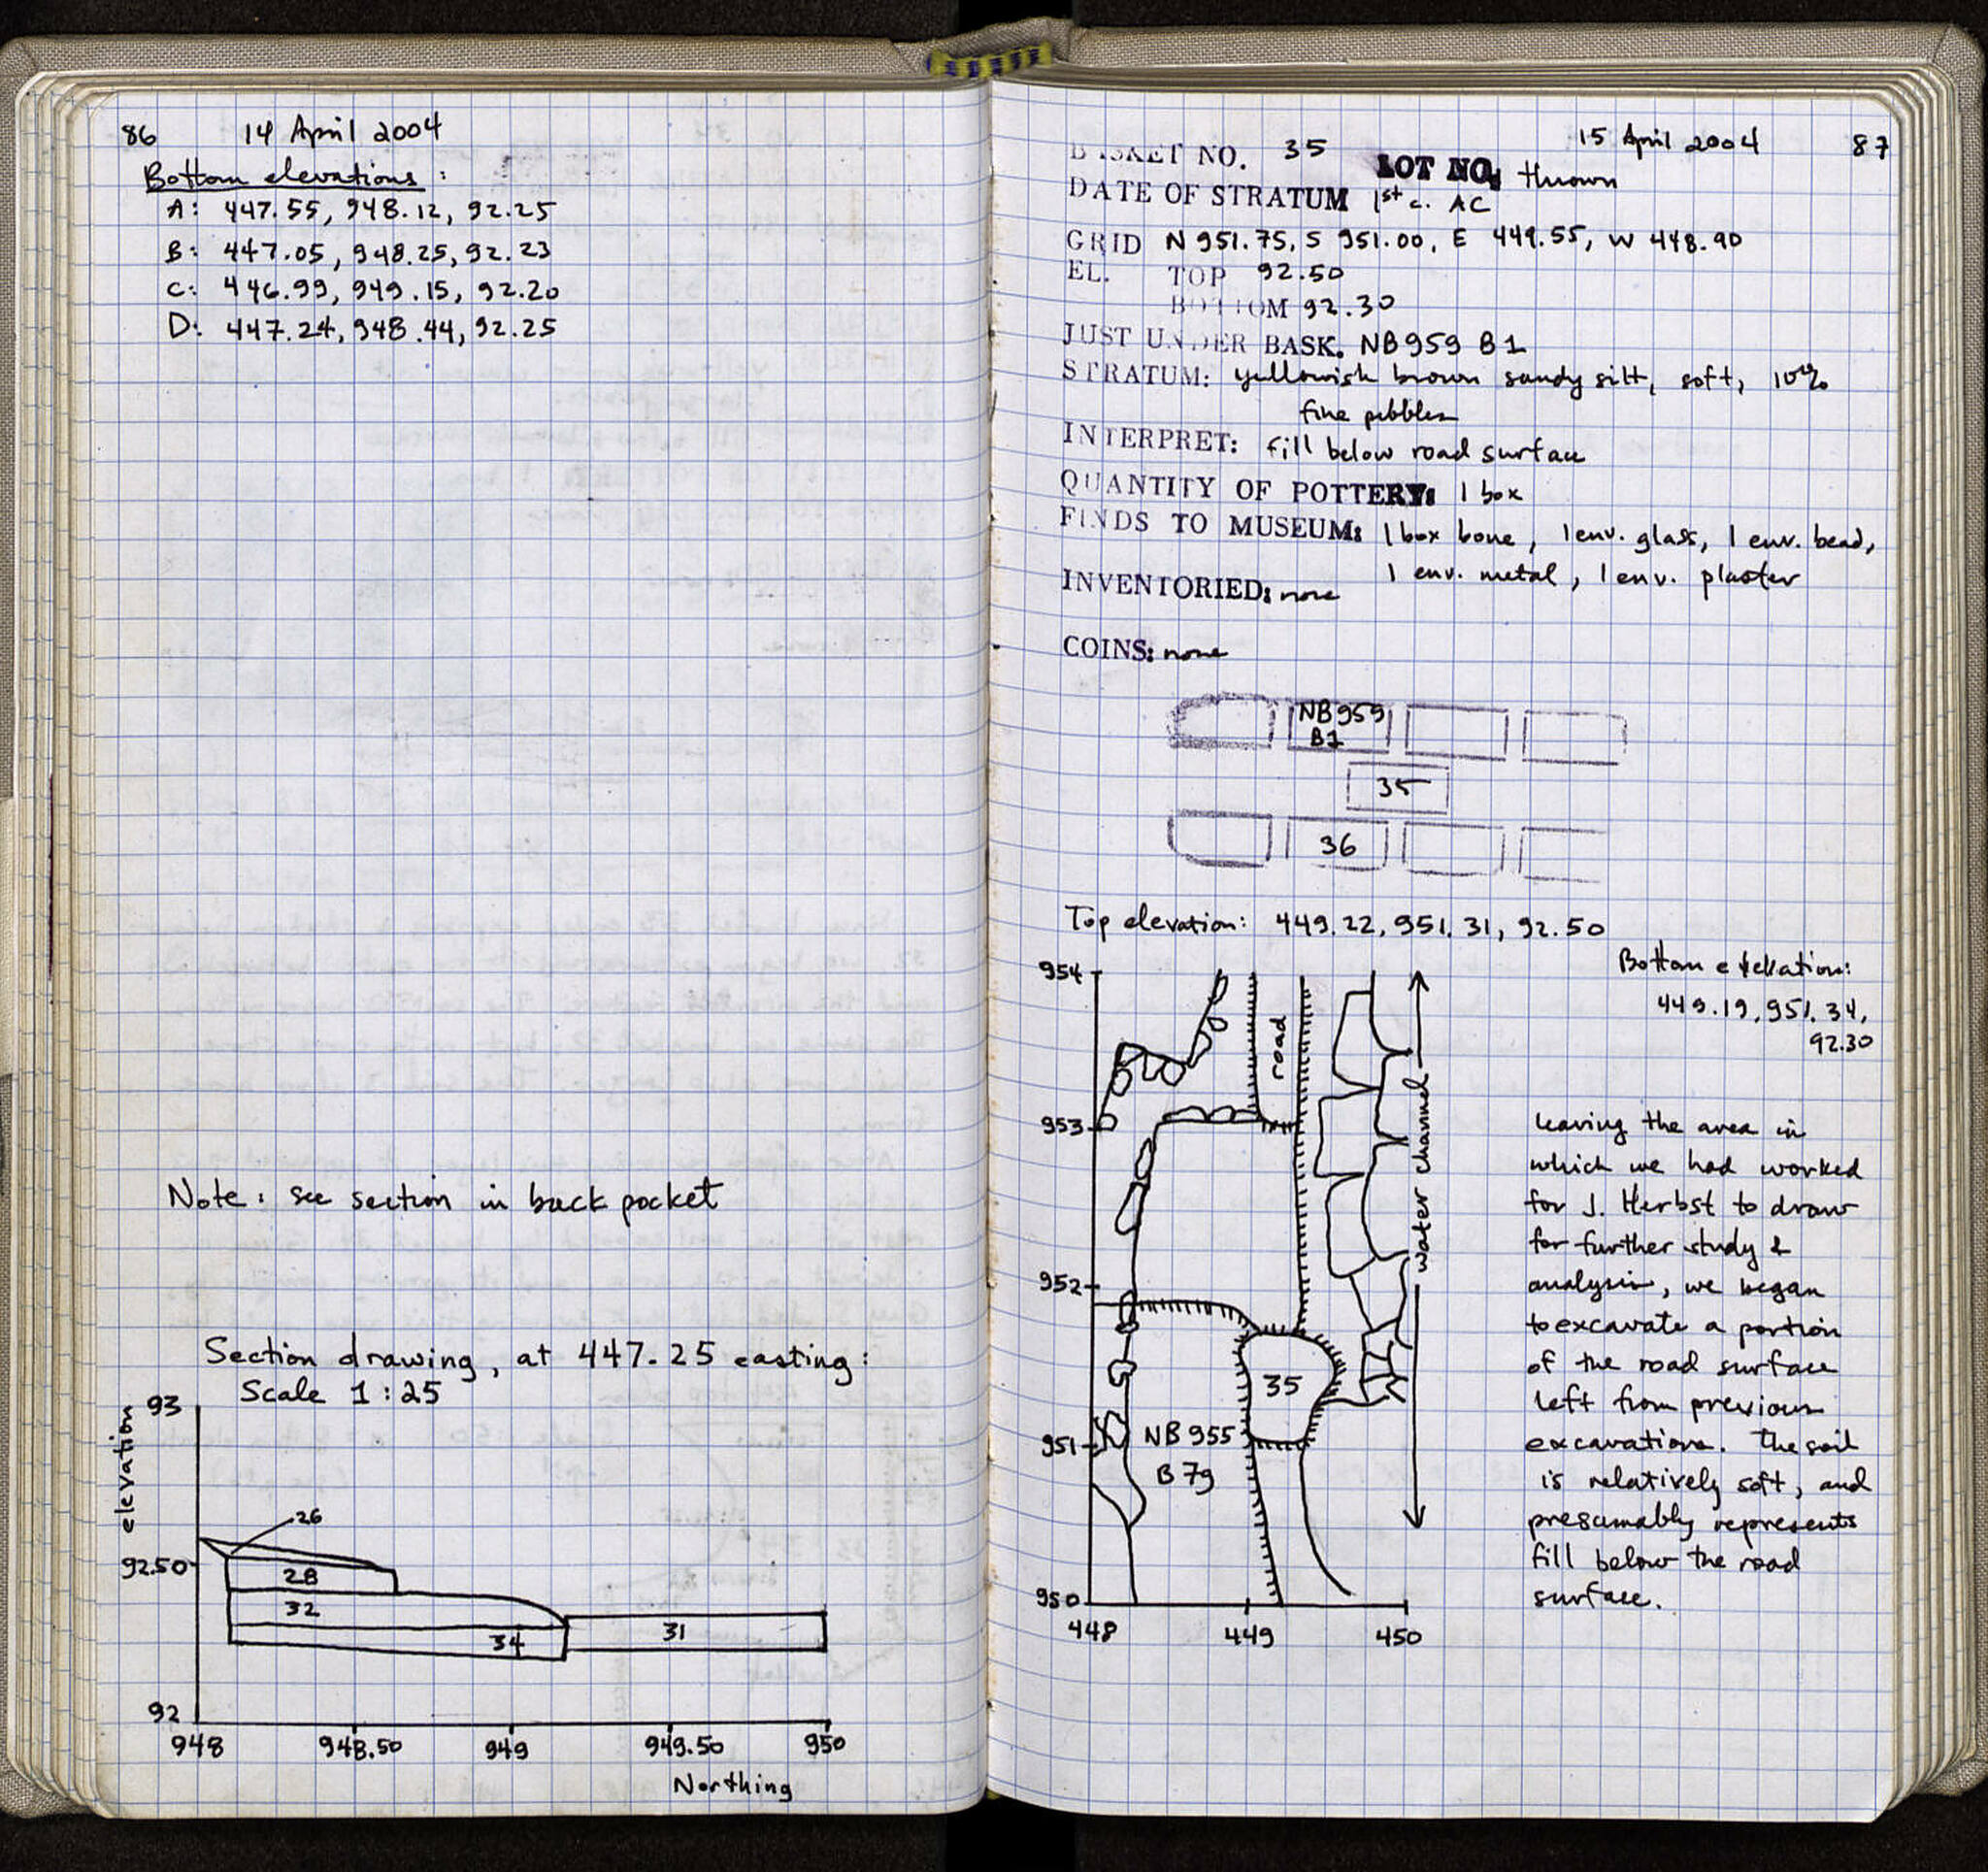 86 14 April 2004
Bottom elevations:
A: 447.55, 948.12, 92.25
B: 447.05, 948.25, 92.23
C: 446.99, 949.15, 92.20
D: 447.24, 948.44, 92.25
Note: see section in back pocket
Section drawing, at 447.25 easting:
Scale 1:25
elevation
93
92.50
92
26
28
32
34
31
948 948.50 949 949.50 950
Northing
15 April 2004 87
BASKET NO. 35 LOT NO: thrown
DATE OF STRATUM 1st c. AC
GRID N 951.75, S 951.00, E 449.55, W 448.90
EL. TOP 92.50
BOTTOM 92.30
JUST UNDER BASK. NB959 B1
STRATUM: yellowish brown sandy silt, soft, 10%
fine pebbles
INTERPRET: fill below road surface
QUANTITY OF POTTERY: 1 box
FINDS TO MUSEUM: 1 box bone, 1 env. glass, 1 env. bead,
1 env. metal, 1 env. plaster
INVENTORIED: none
COINS: none
NB959
B1
35
36
Top elevation: 449.22, 951.31, 92.50
Bottom elevation:
449.19, 951.34,
92.30
954
953
952
951
950
road
water channel
35
NB 955
B 79
448 449 450
Leaving the area in
which we had worked
for J. Herbst to draw
for further study &
analysis, we began
to excavate a portion
of the road surface
left from previous
excavations. The soil
is relatively soft, and
presumably represents
fill below the road
surface.